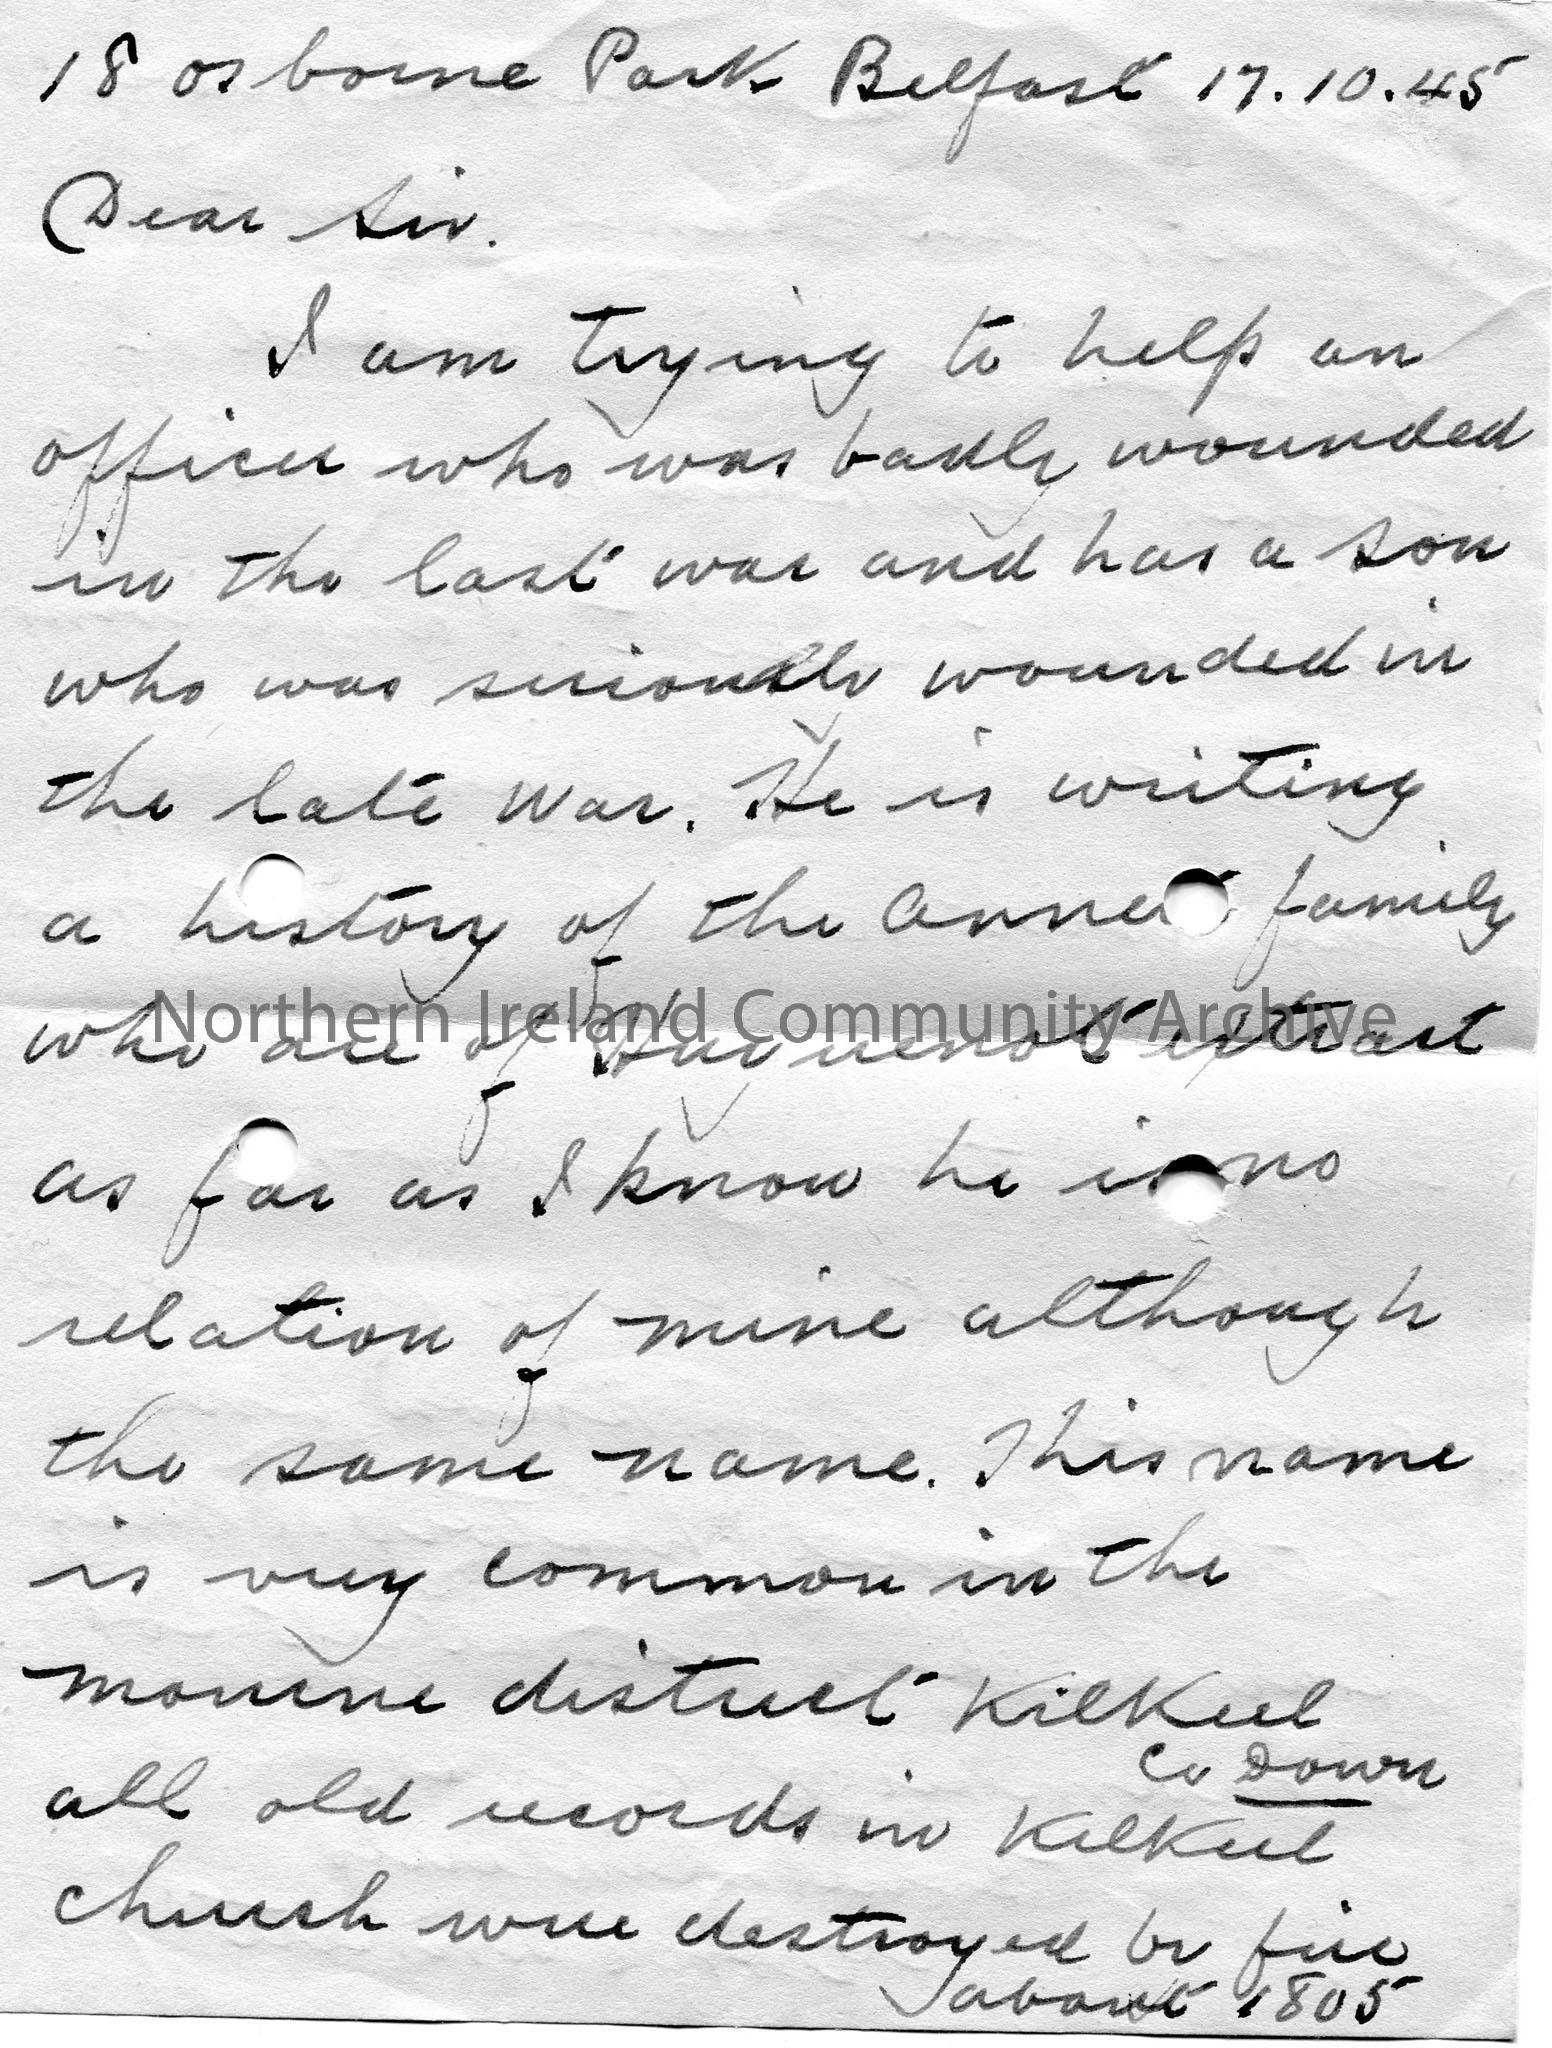 18 osborne Park Belfast 17.10.45
Dear Sir.
I am trying to help an
officer who was badly wounded
in the last war and has a son
who was seriously wounded in
the late war. He is writing
a history of the Annett family
Northern Ireland Community Archive
who are of Huguenot extract
as far as I know he is no
relation of mine although
the same name. This name
is very common in the
mourne district Kilkeel
Co Down
all old records in Kilkeel
church were destroyed by fire
about 1805